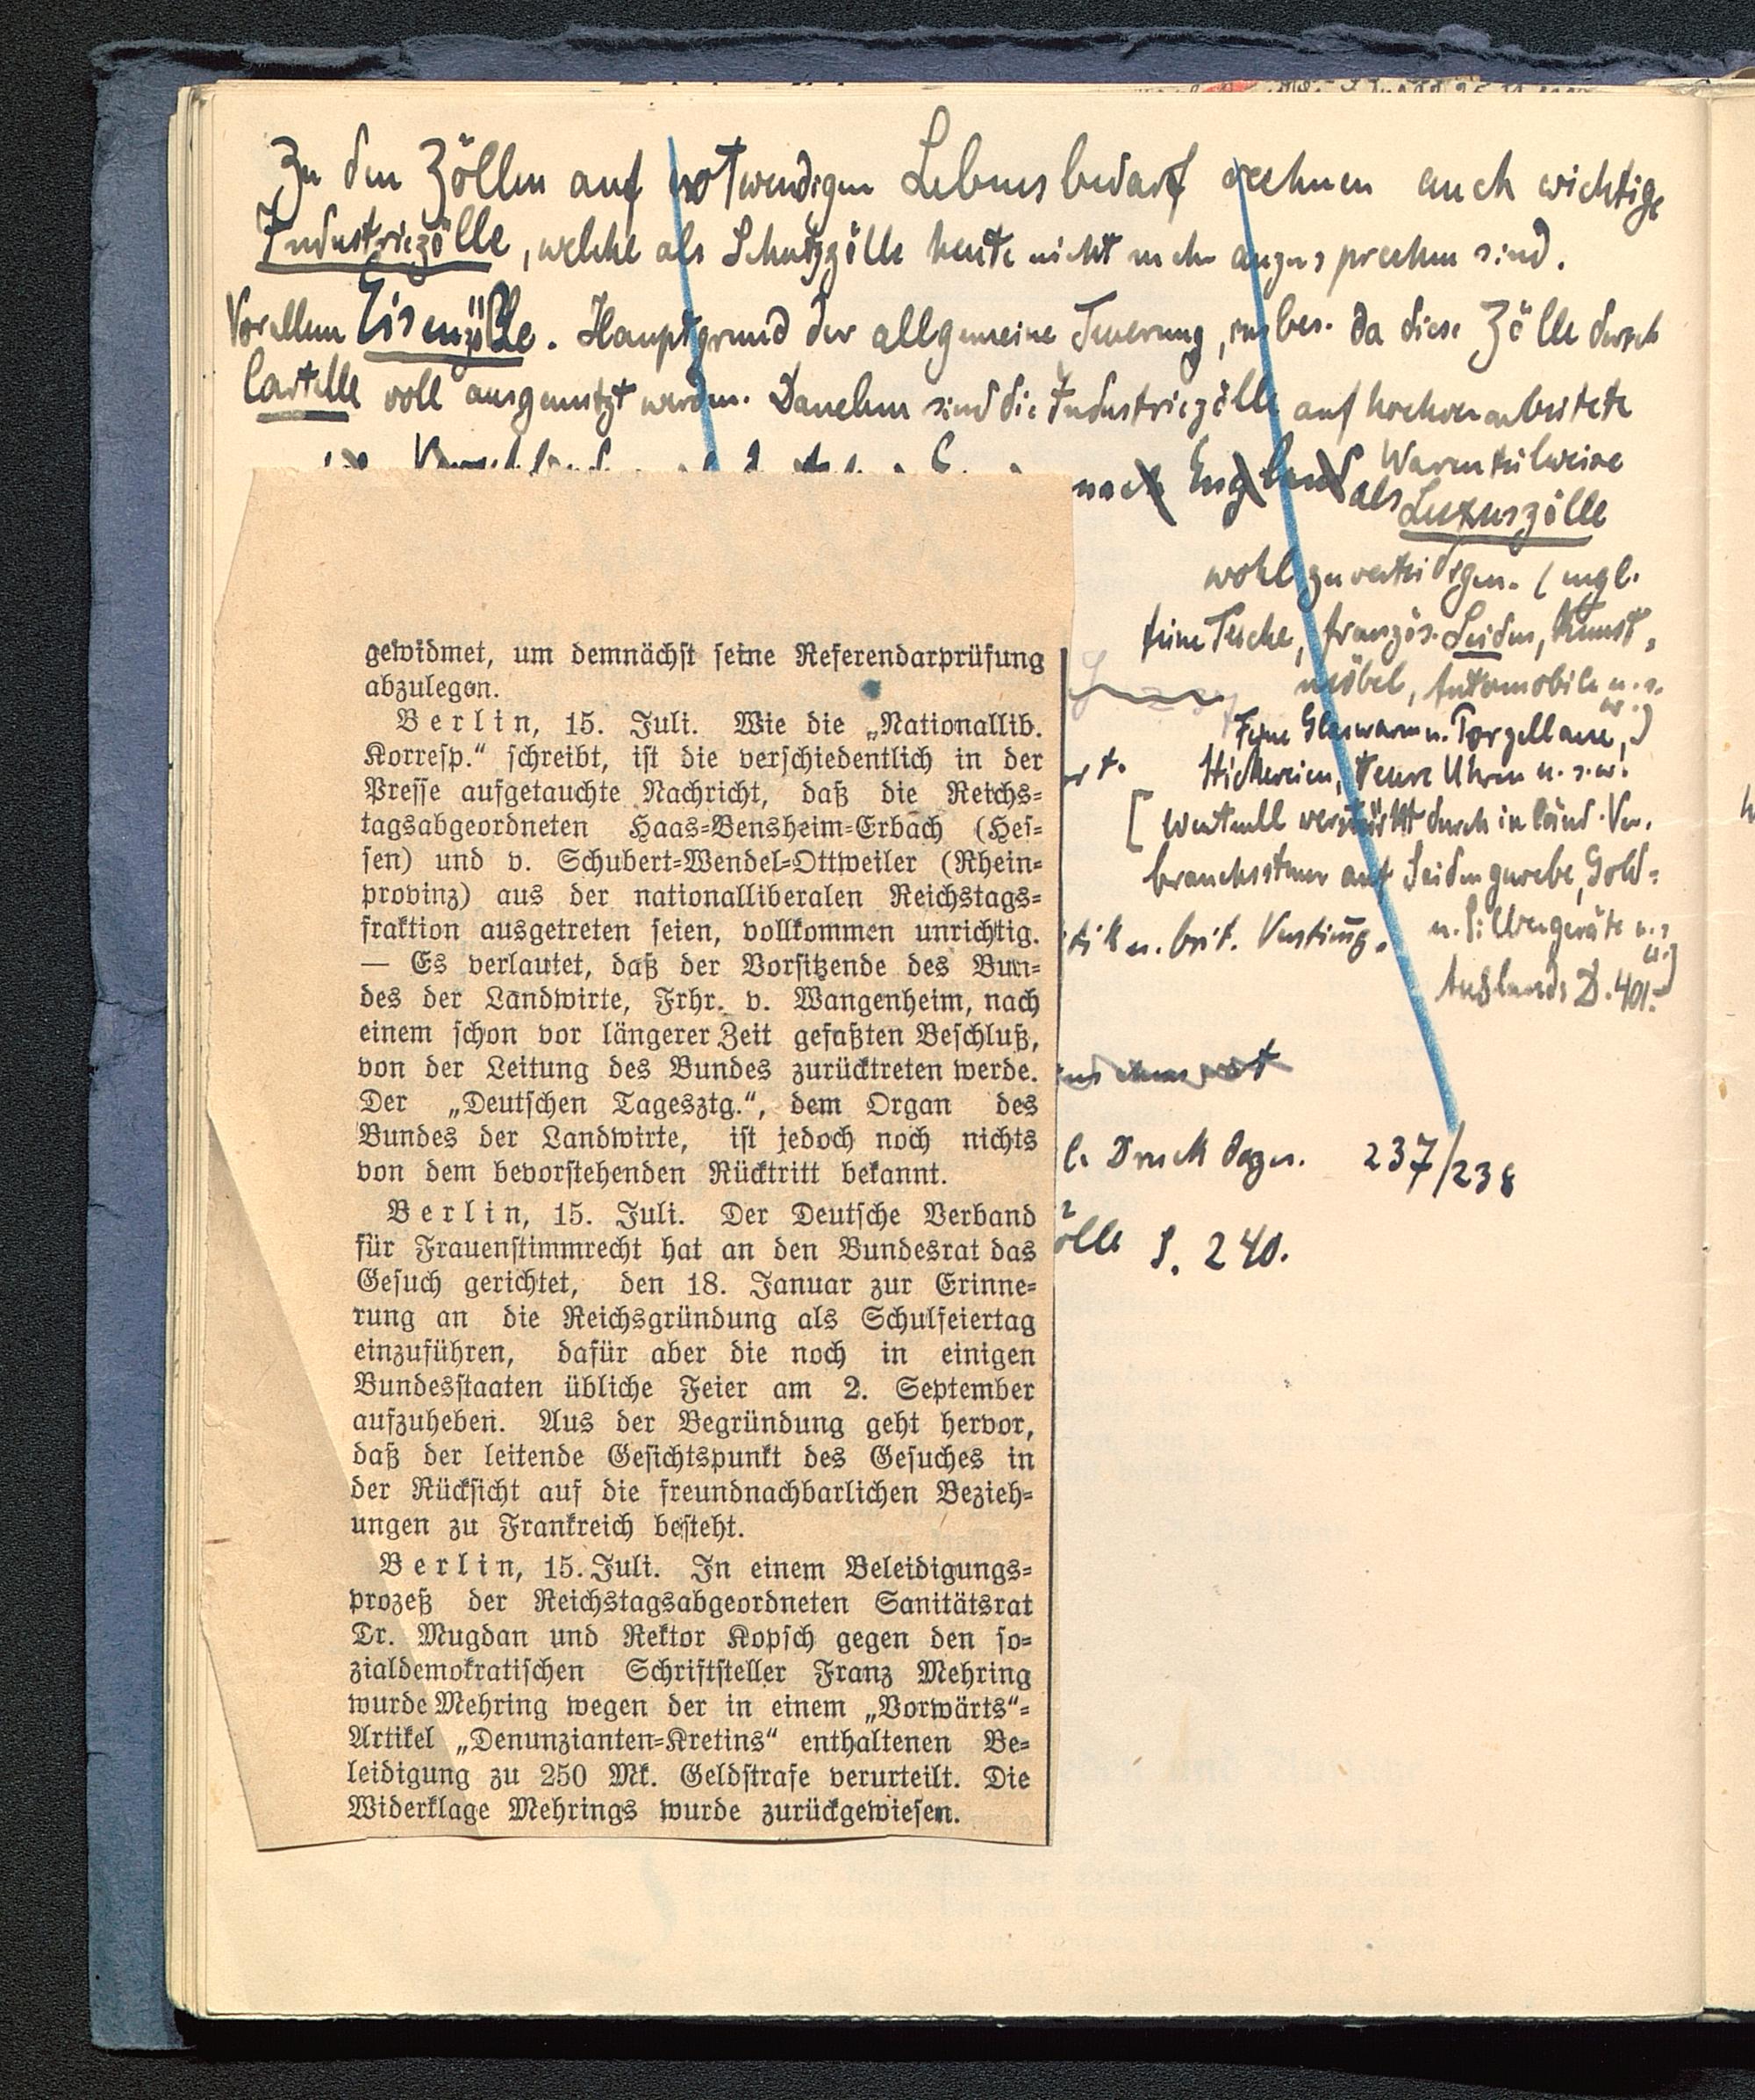 Zu den Zöllen auf notwendigen Lebensbedarf rechnen auch wichtige
Industriezölle, welche als Schutzzölle heute nicht mehr anzusprechen sind.
Vor allem Eisenzölle. Hauptgrund der allgemeine Teuerung, insbes. da diese Zölle durch
Cartelle voll ausgenutzt werden. Daneben sind die Industriezölle auf hochverarbeitete
nach England Waren teilweise
als Luxuszölle
wohl zu verteidigen. (engl.
feine Tuche, französ. Seiden, Kunst,
möbel, Automobile u. s. w.
Feine Glaswaren u. Porzellane,)
Stickereien, teure Uhren u. s. w.
[eventuell verstärkt durch inländ. Ver.
brauchssteuer auf Seidengewebe, Gold-
u. Silbergeräte u. s. w.]
Auslands D. 401.
l. Druck dazu. 237/238
ölle S. 240.
gewidmet, um demnächst seine Referendarprüfung
abzulegen.
Berlin, 15. Juli. Wie die „Nationallib.
Korresp.“ schreibt, ist die verschiedentlich in der
Presse aufgetauchte Nachricht, daß die Reichs-
tagsabgeordneten Haas-Bensheim-Erbach (Hes-
sen) und v. Schubert-Wendel-Ottweiler (Rhein-
provinz) aus der nationalliberalen Reichstags-
fraktion ausgetreten seien, vollkommen unrichtig.
— Es verlautet, daß der Vorsitzende des Bun-
des der Landwirte, Frhr. v. Wangenheim, nach
einem schon vor längerer Zeit gefaßten Beschluß,
von der Leitung des Bundes zurücktreten werde.
Der „Deutschen Tagesztg.“, dem Organ des
Bundes der Landwirte, ist jedoch noch nichts
von dem bevorstehenden Rücktritt bekannt.
Berlin, 15. Juli. Der Deutsche Verband
für Frauenstimmrecht hat an den Bundesrat das
Gesuch gerichtet, den 18. Januar zur Erinne-
rung an die Reichsgründung als Schulfeiertag
einzuführen, dafür aber die noch in einigen
Bundesstaaten übliche Feier am 2. September
aufzuheben. Aus der Begründung geht hervor,
daß der leitende Gesichtspunkt des Gesuches in
der Rücksicht auf die freundnachbarlichen Bezieh-
ungen zu Frankreich besteht.
Berlin, 15. Juli. In einem Beleidigungs-
prozeß der Reichstagsabgeordneten Sanitätsrat
Dr. Mugdan und Rektor Kopsch gegen den so-
zialdemokratischen Schriftsteller Franz Mehring
wurde Mehring wegen der in einem „Vorwärts“-
Artikel „Denunzianten-Kretins“ enthaltenen Be-
leidigung zu 250 Mk. Geldstrafe verurteilt. Die
Widerklage Mehrings wurde zurückgewiesen.